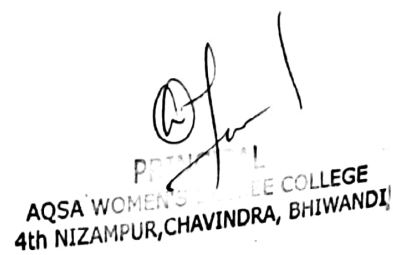 PRINCIPAL
AQSA WOMEN'S COLLEGE
4th NIZAMPUR,CHAVINDRA, BHIWANDI